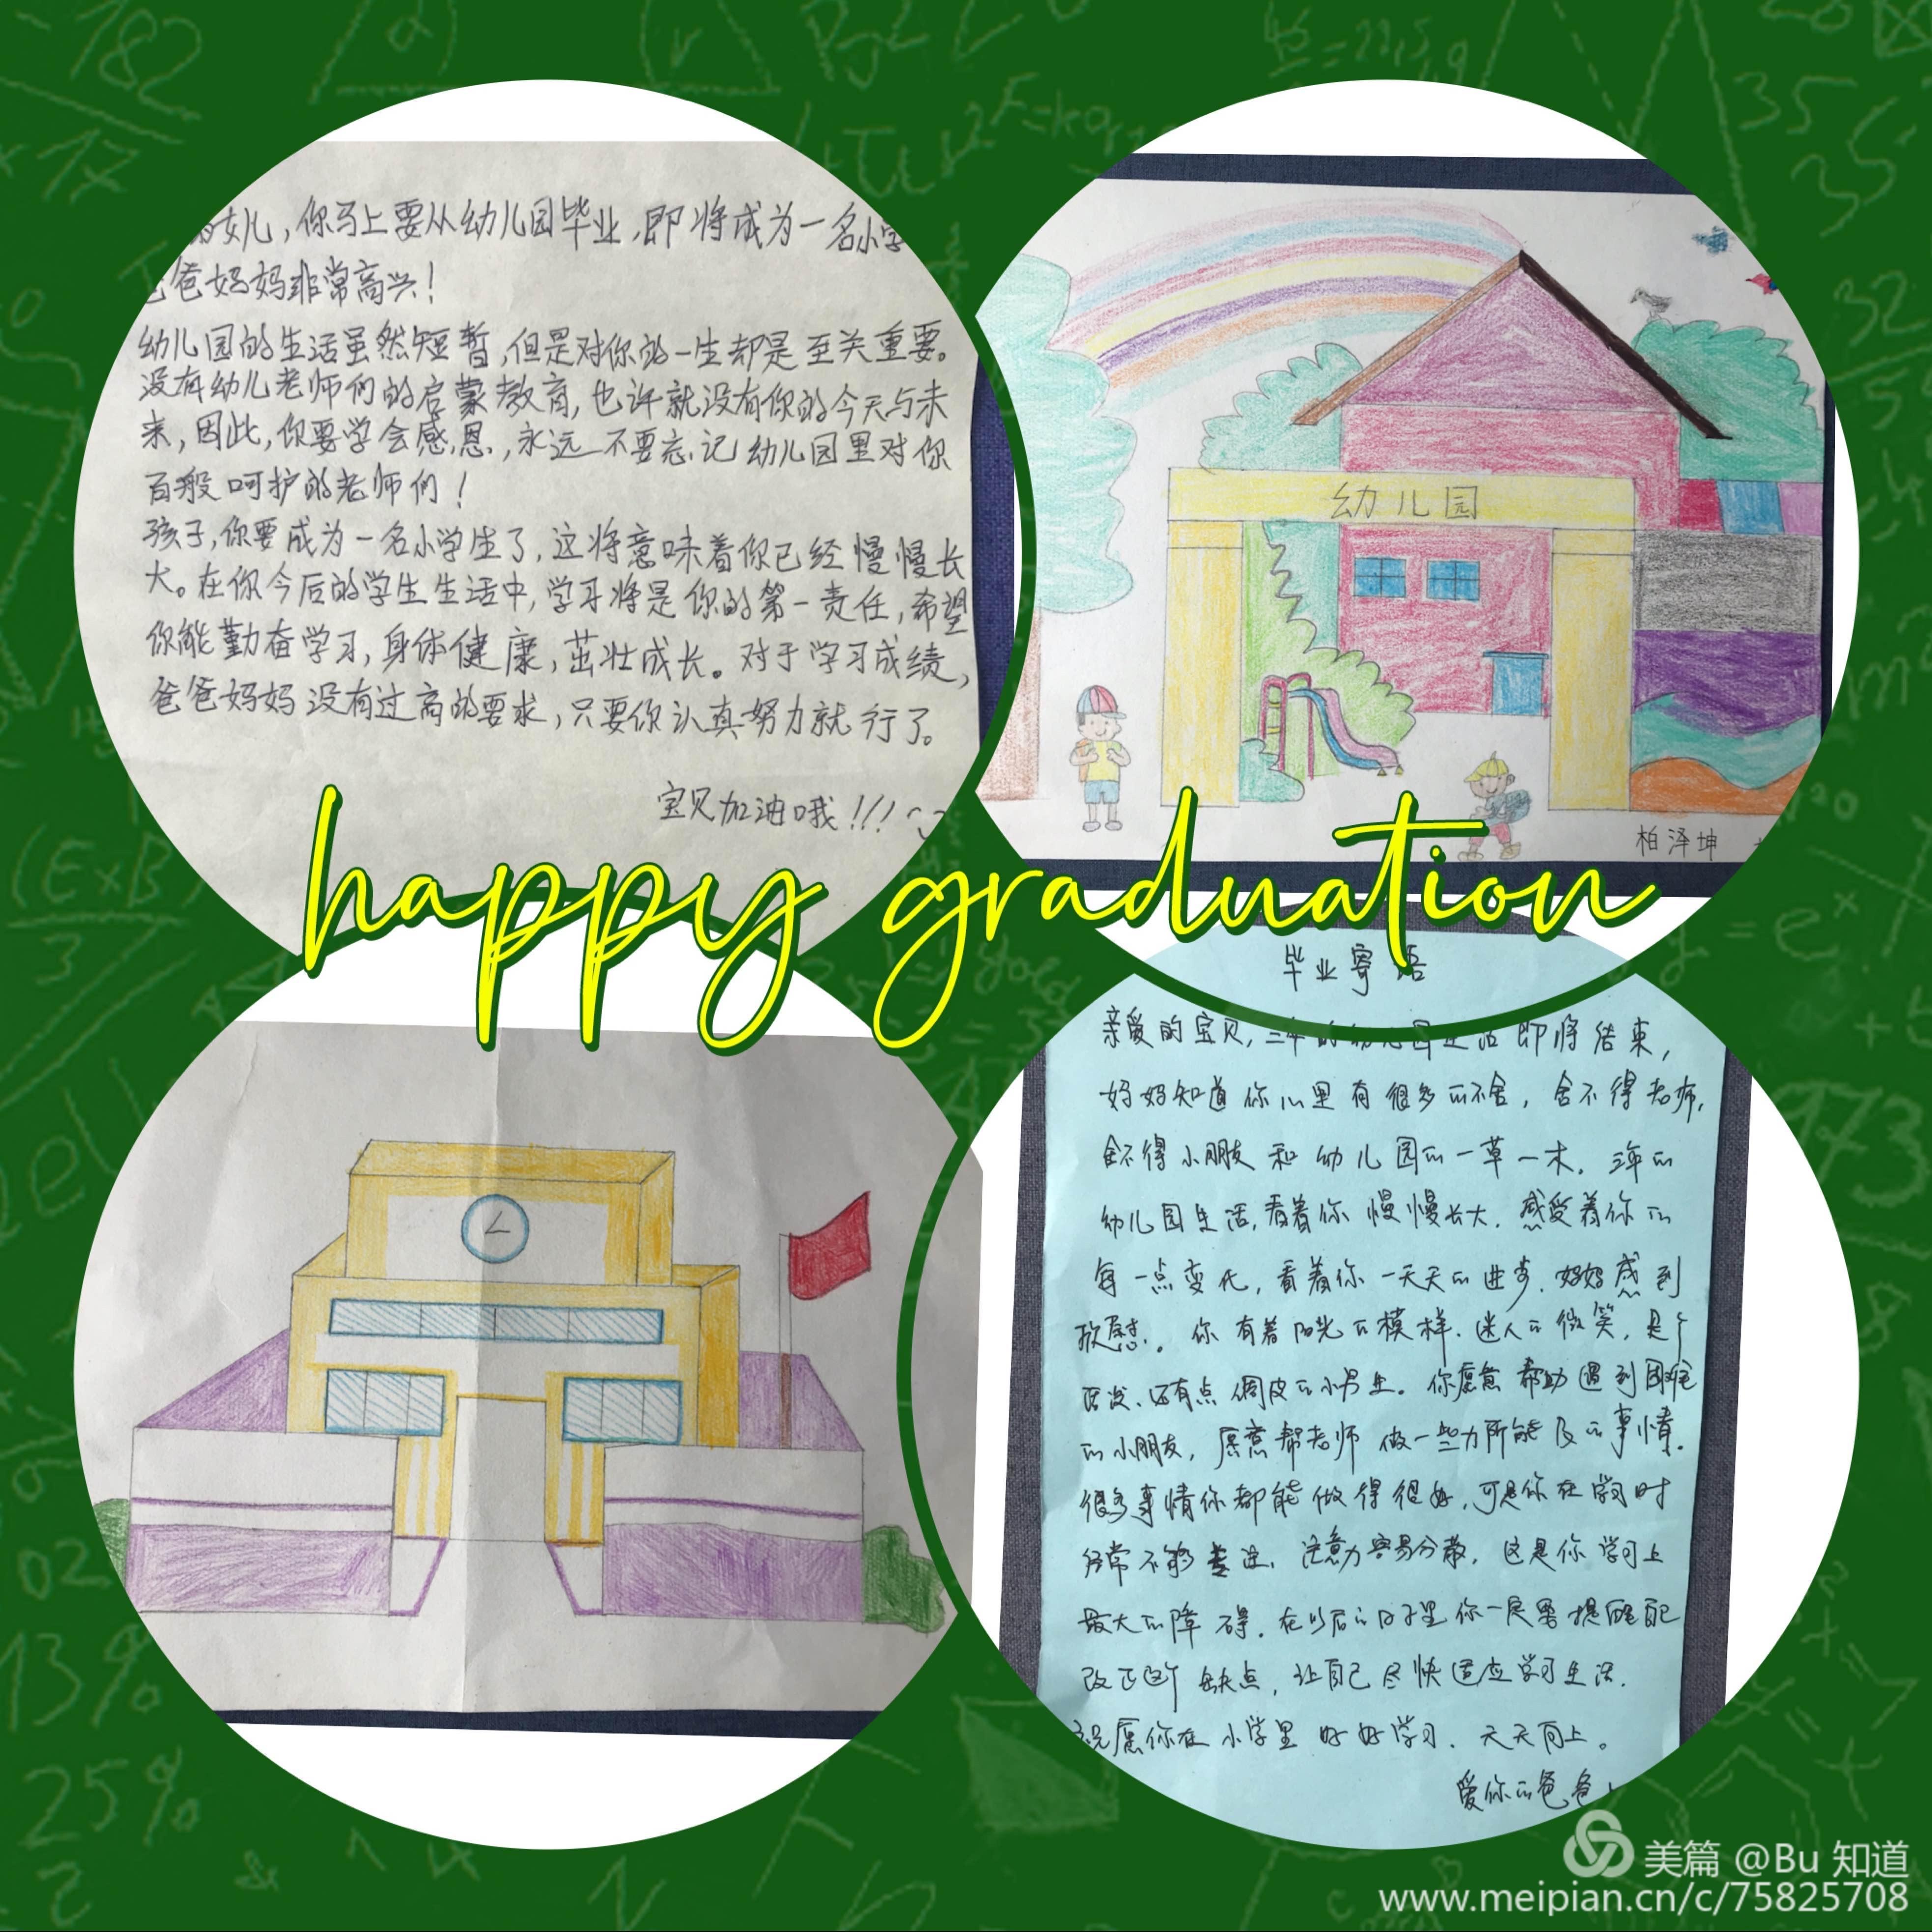 的女儿，你马上要从幼儿园毕业，即将成为一名小学
爸爸妈妈非常高兴！
幼儿园的生活虽然短暂，但是对你的一生却是至关重要。
没有幼儿老师们的启蒙教育，也许就没有你的今天与未
来，因此，你要学会感恩，永远不要忘记幼儿园里对你
百般呵护的老师们！
孩子，你要成为一名小学生了，这将意味着你已经慢慢长
大。在你今后的学生生活中，学习将是你的第一责任，希望
你能勤奋学习，身体健康，茁壮成长。对于学习成绩，
爸爸妈妈没有过高的要求，只要你认真努力就行了。
宝贝加油哦！！！
幼儿园
柏泽坤
happy graduation
毕业寄语
亲爱的宝贝，三年的幼儿园生活即将结束，
妈妈知道你心里有很多的不舍，舍不得老师，
舍不得小朋友和幼儿园的一草一木。三年的
幼儿园生活，看着你慢慢长大，感受着你的
每一点变化，看着你一天天的进步，妈妈感到
欣慰。你有着阳光的模样，迷人的微笑，是个
活泼、还有点调皮的小男生。你愿意帮助遇到困难
的小朋友，愿意帮老师做一些力所能及的事情。
很多事情你都能做得很好，可是你在学习时
经常不够专注，注意力容易分散，这是你学习上
最大的障碍，在以后的日子里你一定要提醒自己
改正这个缺点，让自己尽快适应学习生活。
祝愿你在小学里好好学习，天天向上。
爱你的爸爸
美篇 @Bu 知道
www.meipian.cn/c/75825708